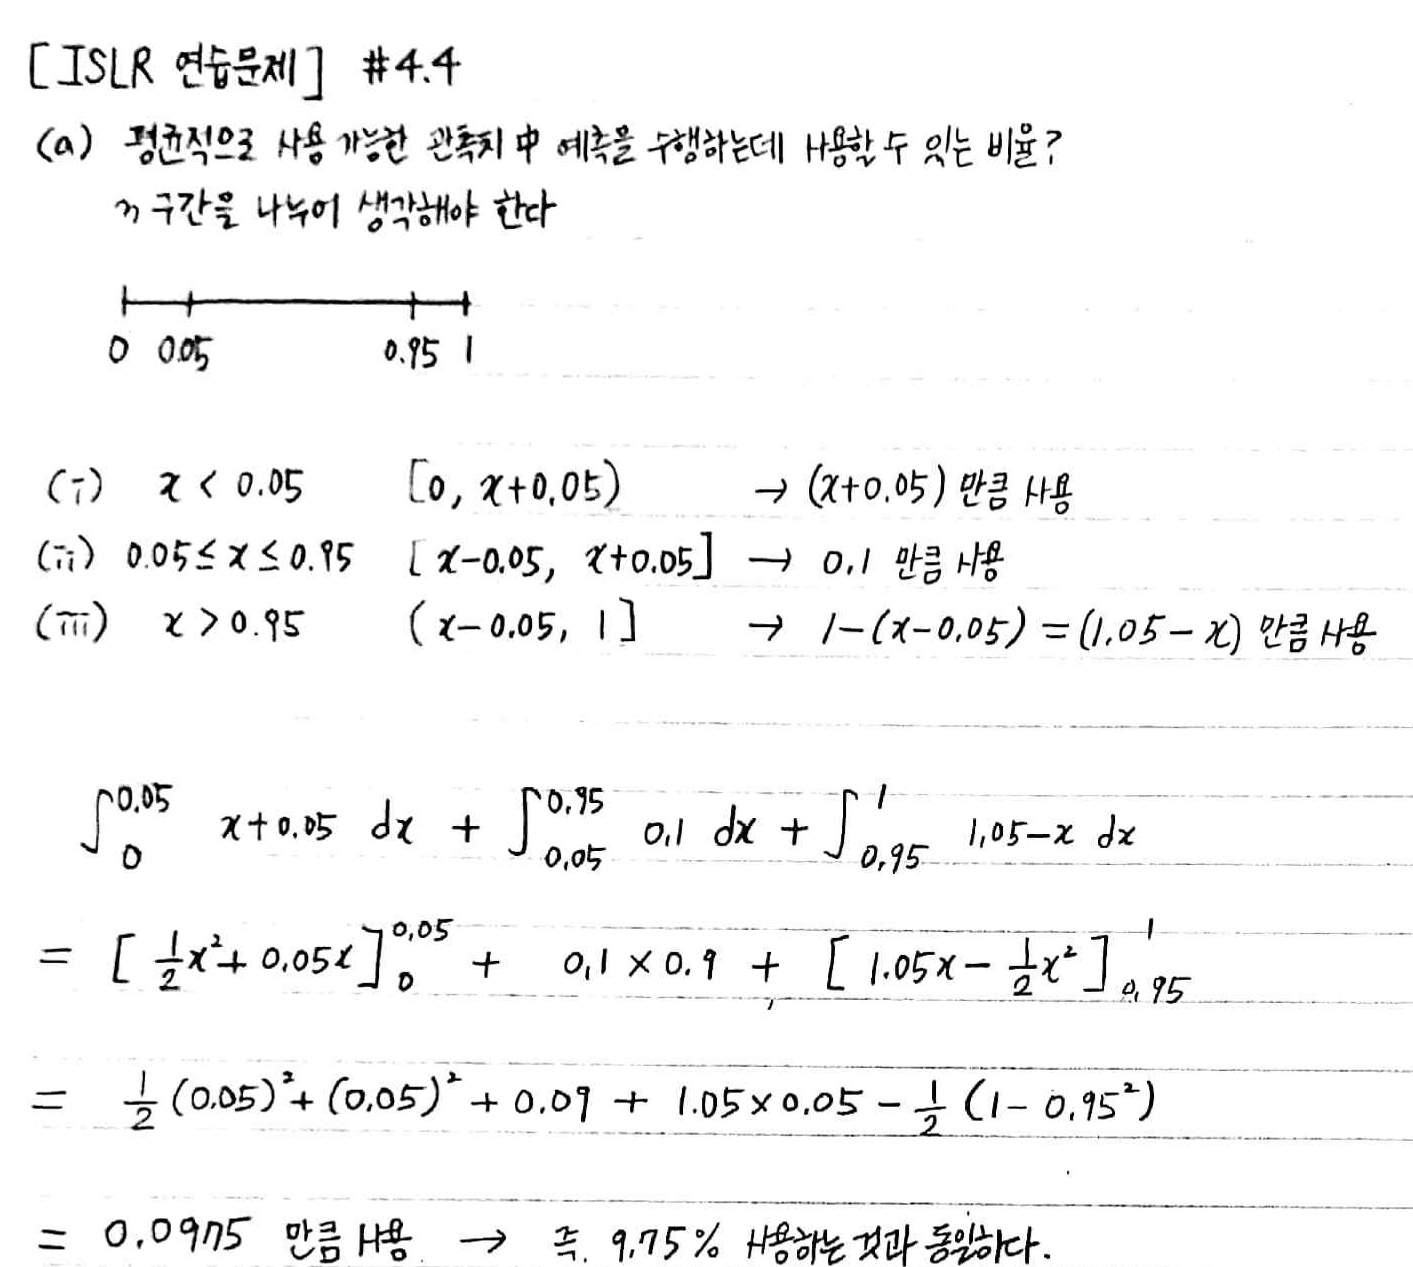 [ISLR 연습문제] #4.4
(a) 평균적으로 사용 가능한 관측치 中 예측을 수행하는데 사용할 수 있는 비율?
구간을 나누어 생각해야 한다
0 0.05 0.95 1
(i) x < 0.05 [0, x+0.05) → (x+0.05) 만큼 사용
(ii) 0.05 ≤ x ≤ 0.95 [x-0.05, x+0.05] → 0.1 만큼 사용
(iii) x > 0.95 (x-0.05, 1] → 1-(x-0.05) = (1.05-x) 만큼 사용
∫₀^0.05 x+0.05 dx + ∫_0.05^0.95 0.1 dx + ∫_0.95^1 1.05-x dx
= [½x²+0.05x]₀^0.05 + 0.1 × 0.9 + [1.05x - ½x²]_0.95^1
= ½(0.05)² + (0.05)² + 0.09 + 1.05×0.05 - ½(1-0.95²)
= 0.0975 만큼 사용 → 즉, 9.75% 사용하는 것과 동일하다.